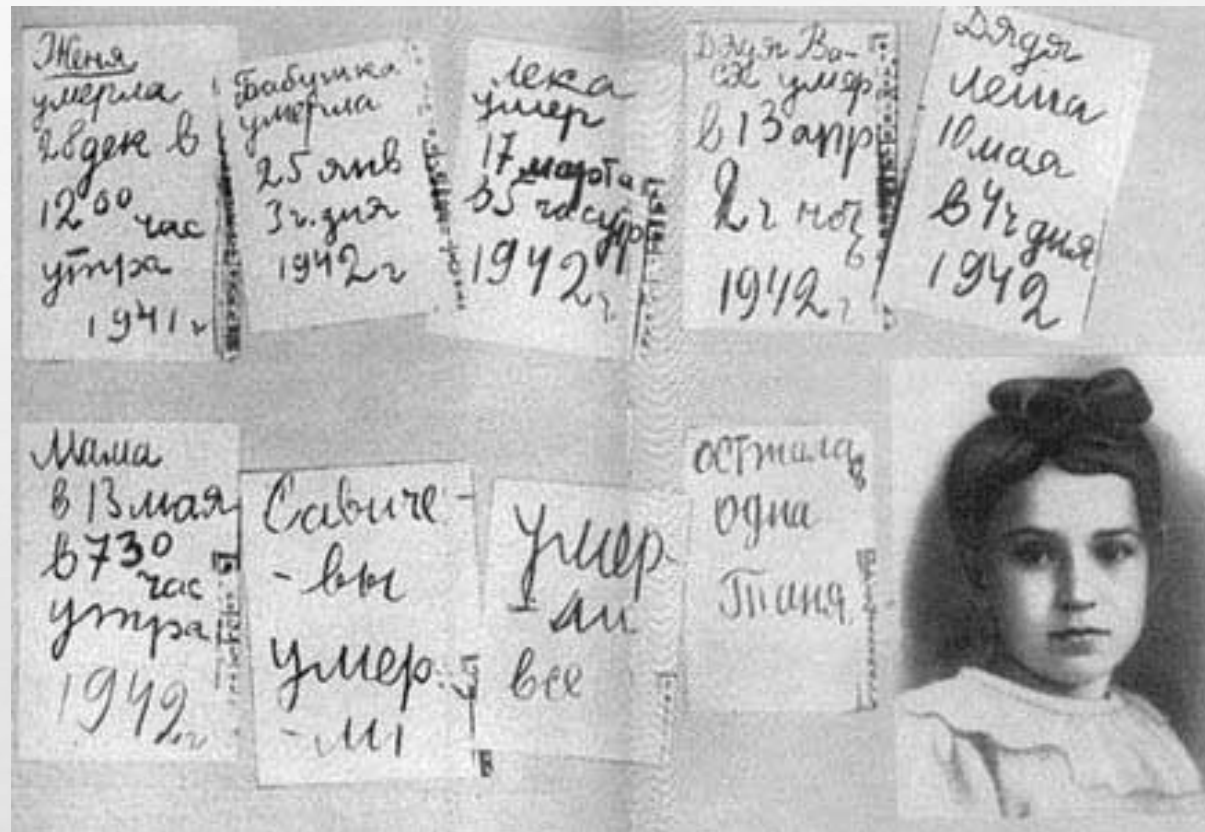 Женя
умерла
28 дек в
12 00 час
утра
1941 г
Бабушка
умерла
25 янв
3 ч. дня
1942 г
Лека
умер
17 марта
в 5 часутр
1942 г.
Дядя Ва-
ся умер
в 13 апр
2 ч ноч
1942 г
Дядя
Леша
10 мая
в 4 ч дня
1942
Мама
в 13 мая
в 7 30
час
утра
1942 г
Савиче-
-вы
умер-
-ли
Умер-
-ли
все
осталась
одна
Таня